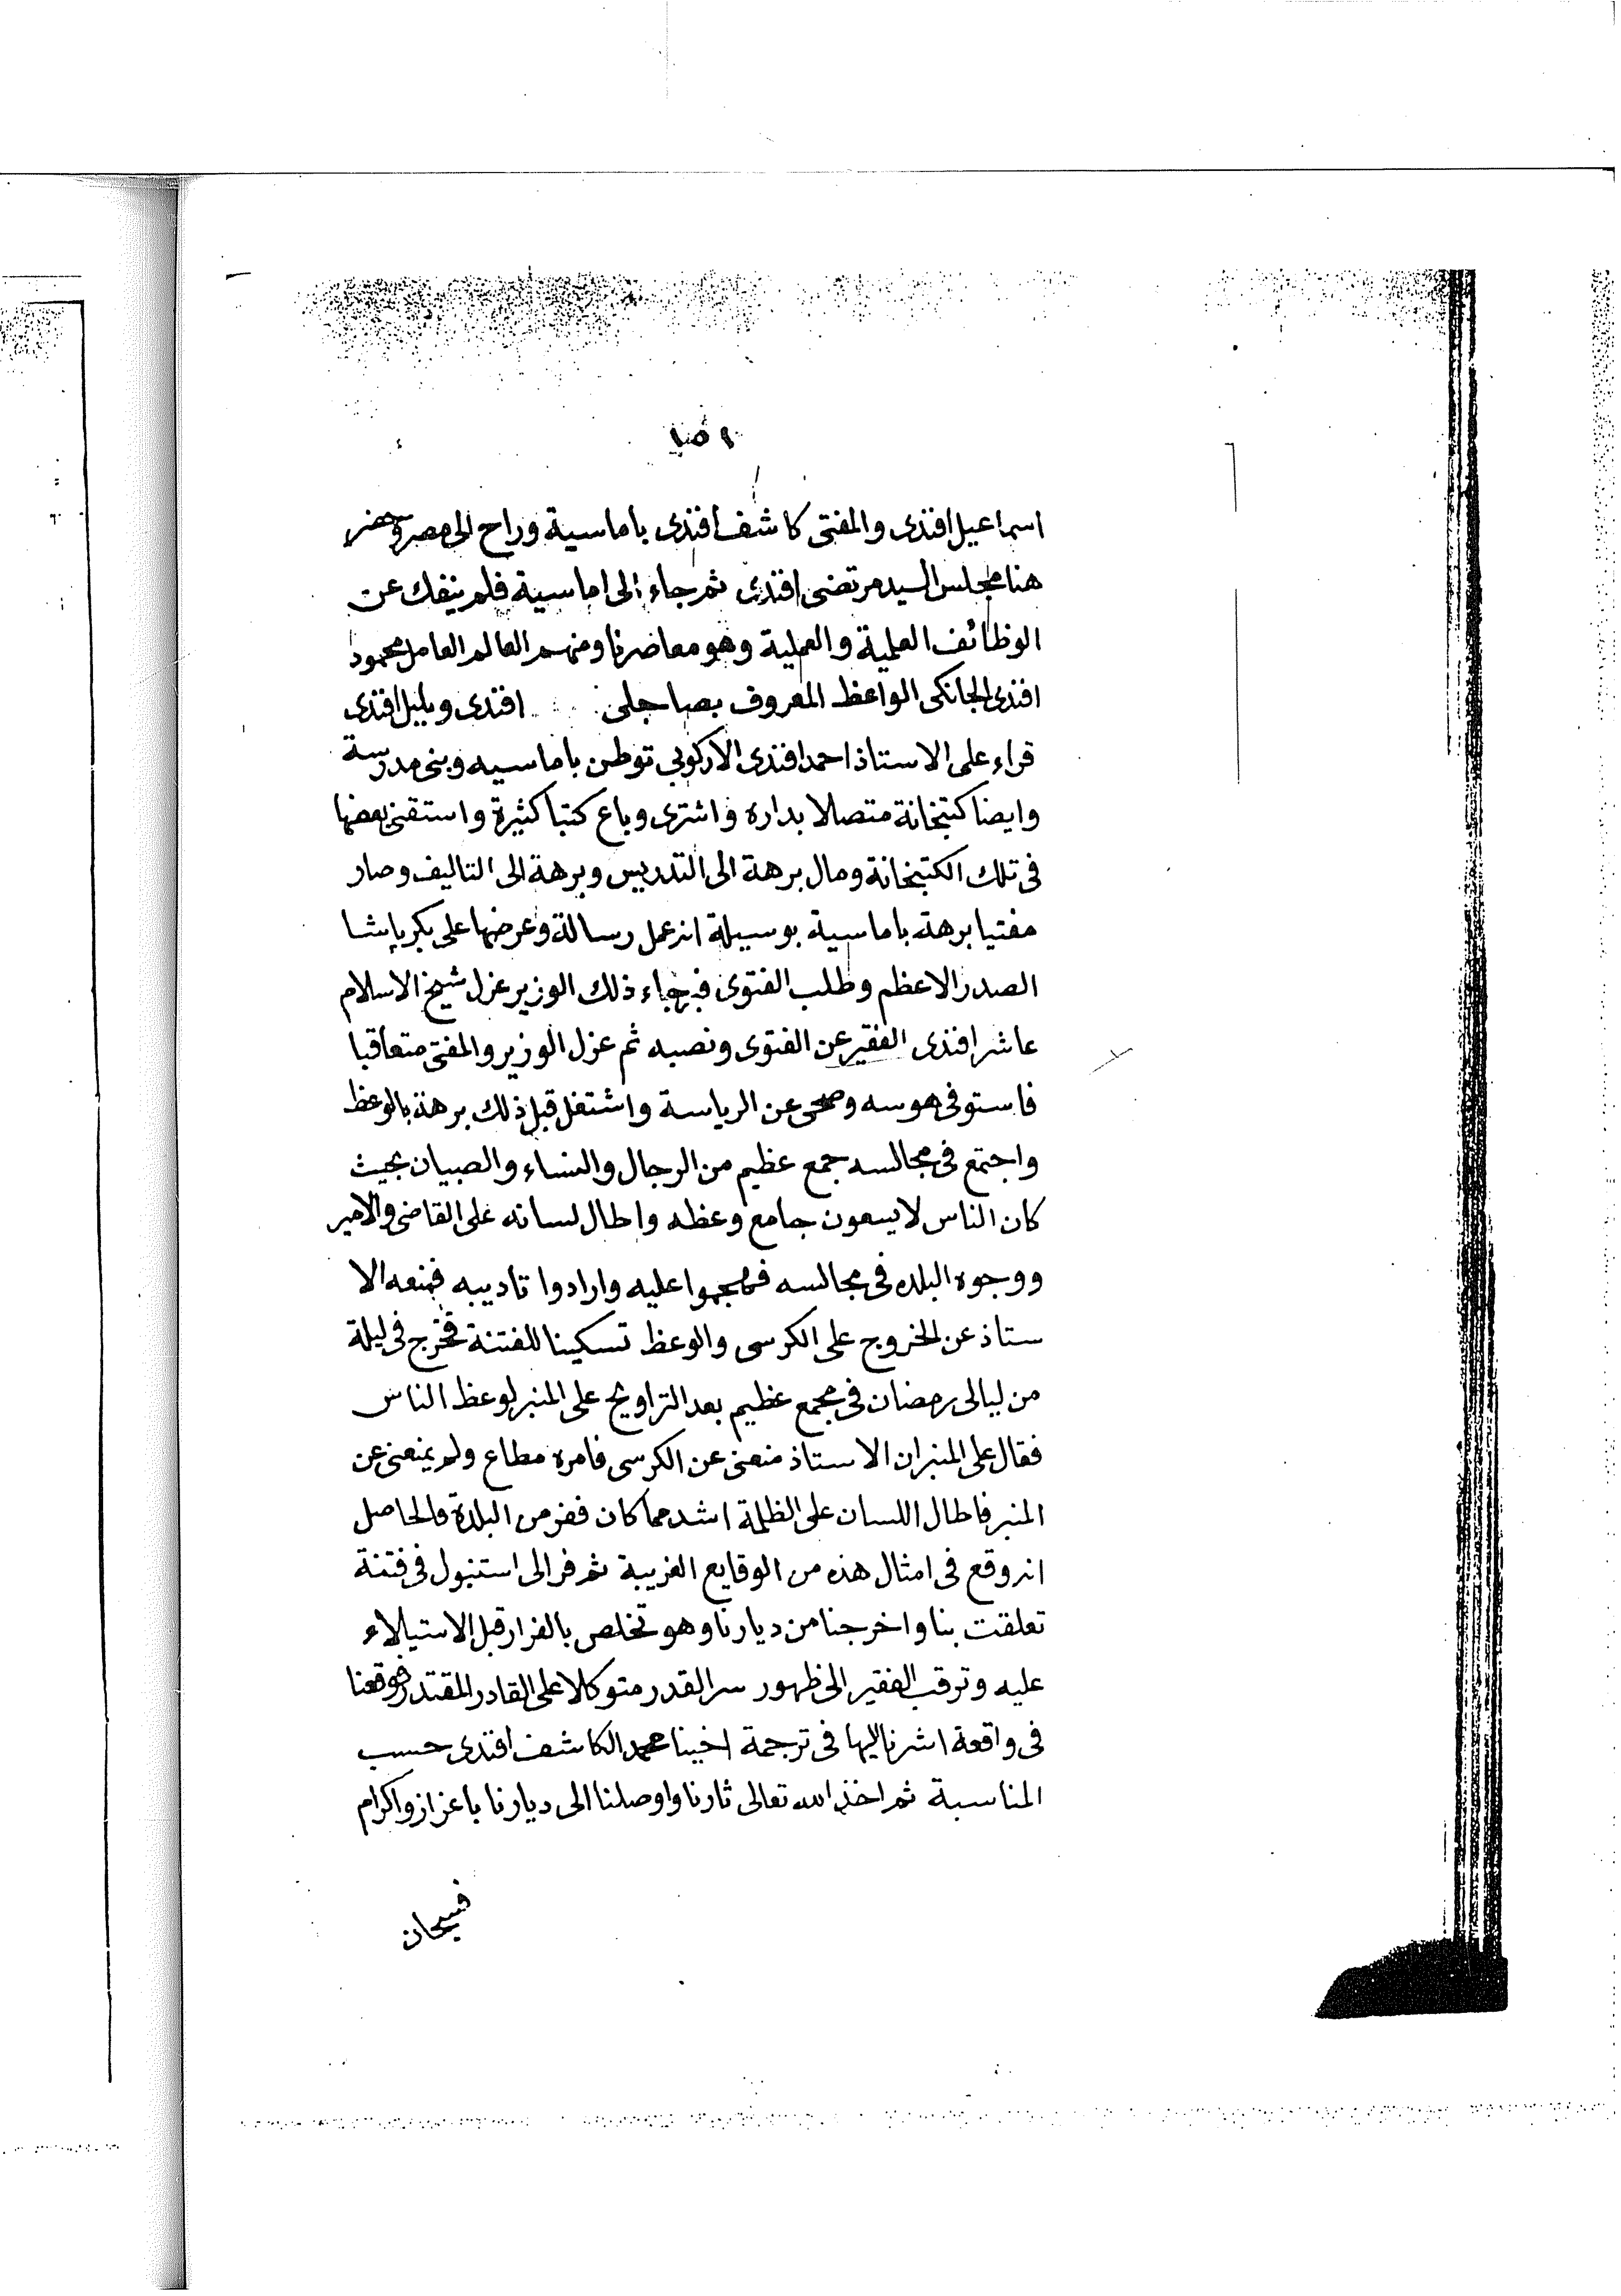 اسماعيل افندى والمفتى كاشف افندى باماسية وراح الى مصر وحضر
هنا مجلس السيد مرتضى افندى ثم جاء الى اماسية فلم ينفك عن
الوظائف العلمية والعملية وهو معاصرنا ومنهم العالم العامل محمود
افندى الجانكى الواعظ المعروف بصاجلى افندى وبليل افندى
قراء على الاستاذ احمد افندى الاركوبي توطن باماسيه وبنى مدرسة
وايضا كتبخانة متصالا بداره واشترى وباع كتبا كثيرة واستقنى بعضها
فى تلك الكتبخانة ومال برهة الى التدريس وبرهة الى التاليف وصار
مفتيا برهة باماسية بوسيلة انه عمل رسالة وعرضها على بكر پاشا
الصدر الاعظم وطلب الفتوى فبرجاء ذلك الوزير عزل شيخ الاسلام
عاشر افندى الفقير عن الفتوى ونصبه ثم عزل الوزير والمفتى متعاقبا
فاستوفى هوسه وصحى عن الرياسة واشتغل قبل ذلك برهة بالوعظ
واجتمع فى مجالسه جمع عظيم من الرجال والنساء والصبيان بحيث
كان الناس لا يسعون جامع وعظه واطال لسانه على القاضى والامير
ووجوه البلده فى مجالسه فهجموا عليه وارادوا تاديبه فمنعه الا
ستاذ عن الخروج على الكرسى والوعظ تسكينا للفتنة فخرج فى ليلة
من ليالى رمضان فى مجمع عظيم بعد التراويح على المنبر لوعظ الناس
فقال على المنبر ان الاستاذ منعنى عن الكرسى فامره مطاع ولم يمنعنى عن
المنبر فاطال اللسان على الظلمة اشد مما كان ففر من البلدة والحاصل
انه وقع فى امثال هذه من الوقايع الغريبة ثم فر الى استنبول فى فتنة
تعلقت بنا واخرجنا من ديارنا وهو تخلص بالفرار قبل الاستيلاء
عليه وترقب الفقير الى ظهور سر القدر متوكلا على القادر المقتدر فوقعنا
فى واقعة اشرنا اليها فى ترجمة اخينا محمد الكاشف افندى حسب
المناسبة ثم اخذ الله تعالى ثارنا واوصلنا الى ديارنا باعزاز واكرام
فسبحان